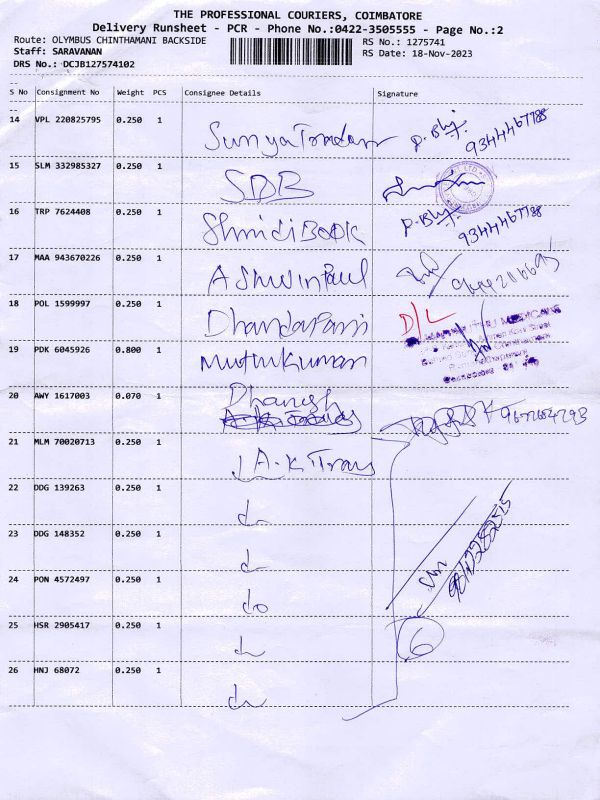 THE PROFESSIONAL COURIERS, COIMBATORE
Delivery Runsheet - PCR - Phone No.:0422-3505555 - Page No.:2
Route: OLYMBUS CHINTHAMANI BACKSIDE RS No.: 1275741
Staff: SARAVANAN RS Date: 18-Nov-2023
DRS No.: DCJB127574102
S No Consignment No Weight PCS Consignee Details Signature
14 VPL 220825795 0.250 1 Surya Traders 9344467788
15 SLM 332985327 0.250 1 SDB
16 TRP 7624408 0.250 1 Shridi Book 9344467788
17 MAA 943670226 0.250 1 Ashwin Paul
18 POL 1599997 0.250 1 Dhandapani D/L
19 PDK 6045926 0.800 1 Muthukumar
20 AWY 1617003 0.070 1 Dhanesh
21 MLM 70020713 0.250 1 A.K Trans
22 DDG 139263 0.250 1 do
23 DDG 148352 0.250 1 do
24 PON 4572497 0.250 1 do
25 HSR 2905417 0.250 1 do 6
26 HNJ 68072 0.250 1 do